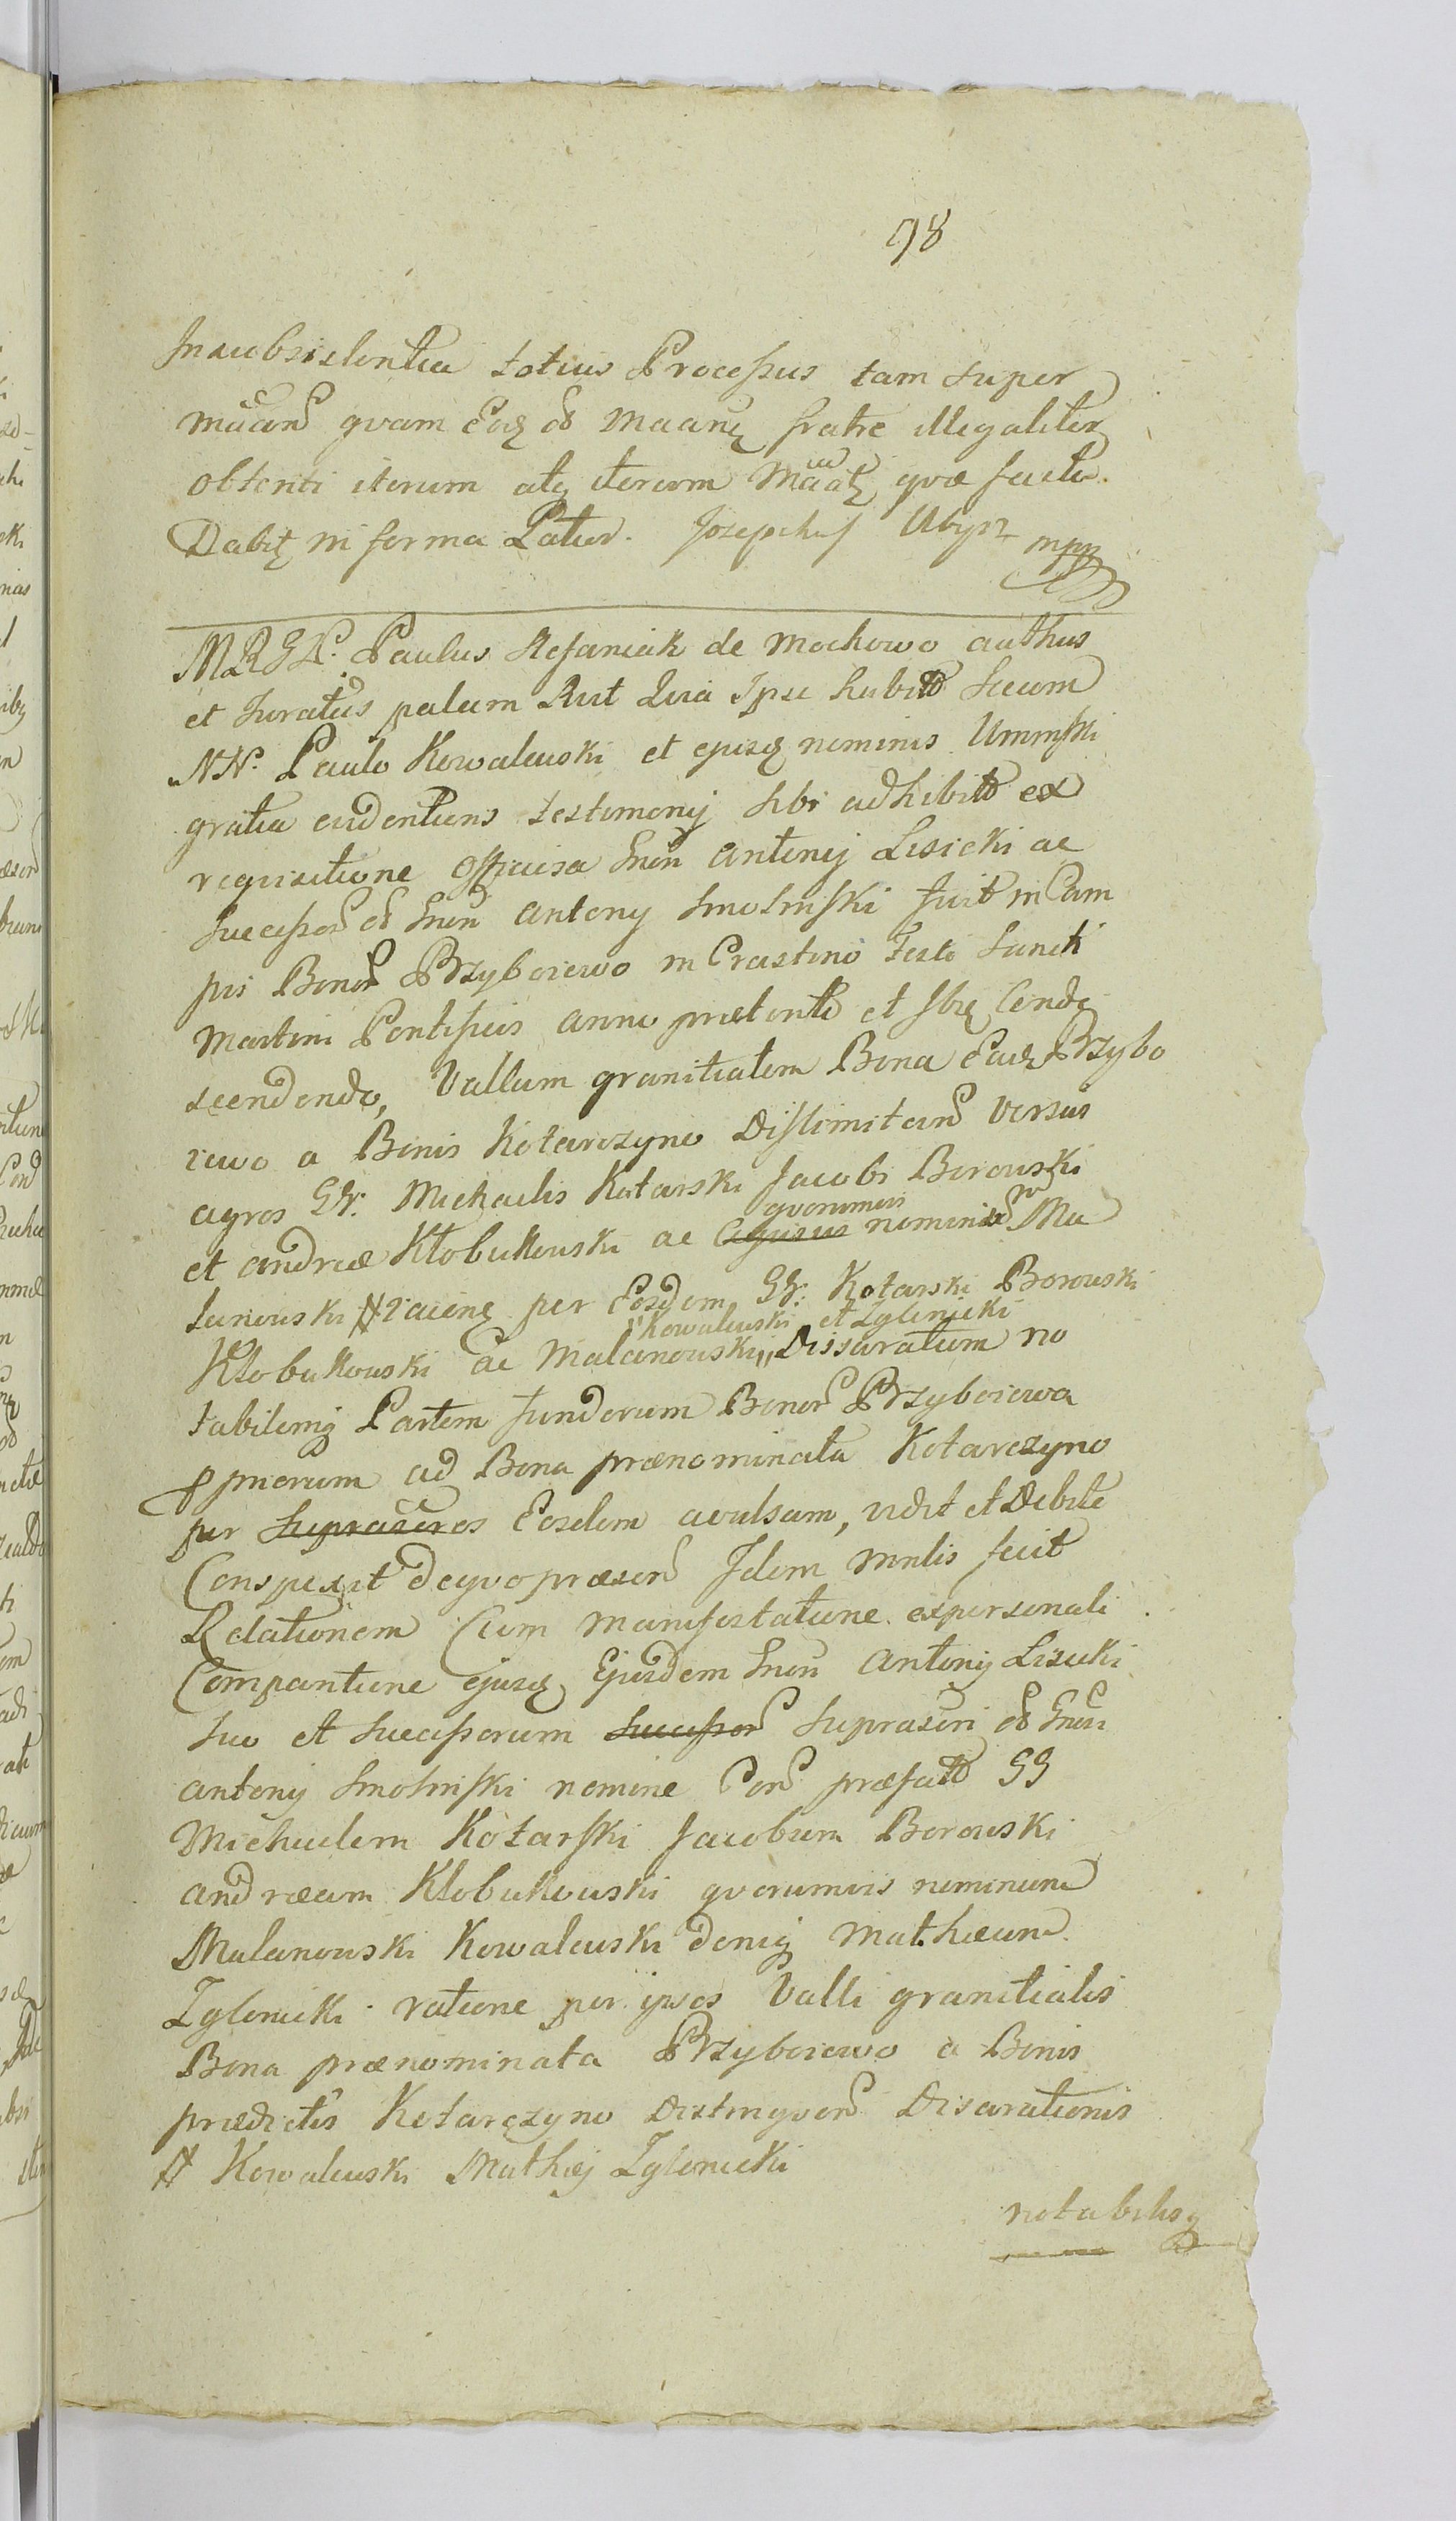 98
Inaubsistentia totius Processus tam super
mãan quam Eaq ob Maanę fratre illegaliter
obtenti iterum atq iterum quæ facta.
Dabit in forma Latior. Josephus Ubysz mpp
MRGK. Paulus Stefaniak de Mochowo authus
et Juratus palam Rvit Quia Ipse habito Secum
NN. Paulo Kowalewski et ejusq nominis Uminski
gratia evidentiens testimonij sibi adhibito ex
requisitione officiosa Gnen Antonij Lisicki ac
Successor ob Gnen Antony Smolinski fuit in Cam
pis Bonor Przyboiewo in Crastino Festi Sancti
Martini Pontificis anno præterito et ibiq Conde
scendendo, Vallum granitialem Bona Eaq Przybo
iewo a Bonis Kotarczyno Dislimitan Versus
agros GG. Michaelis Kotarski Jacobi Borowski
quorumvis
et Andreæ Kłobukowski ac nominum Ma
lanowski # per Eosdem GG. Kotarski Borowski
"Kowalewski et Zglenicki
Kłobukowski ac Malanowski,, Disaratum no
tabilemq Partem fundorum Bonor Przyboiewa
ppriorum ad Bona prænominata Kotarczyno
per Suprascros Eosdem avulsam, vidit et Debite
Conspexit de quo præsen Idem Mnlis fecit
Relationem Cum manifestatione ex personali
Comparitione ejusq Ejusdem Gnen Antonij Lisicki
suo et Successorum Successor Suprascri ob Gnen
Antony Smolinski nomine Con præfato GG
Michaelem Kotarski Jacobum Borowski
Andræam Kłobukowski quorumvis nominum
Malanowski Kowalewski deniq Mathæum
Zglenicki ratione per ipsos Valli granitialis
Bona prænominata Przyboiewo a Bonis
prædictis Kotarczyno Distinguen Disarationis
# Kowalewski Mathæj Zglenicki
notabilisq